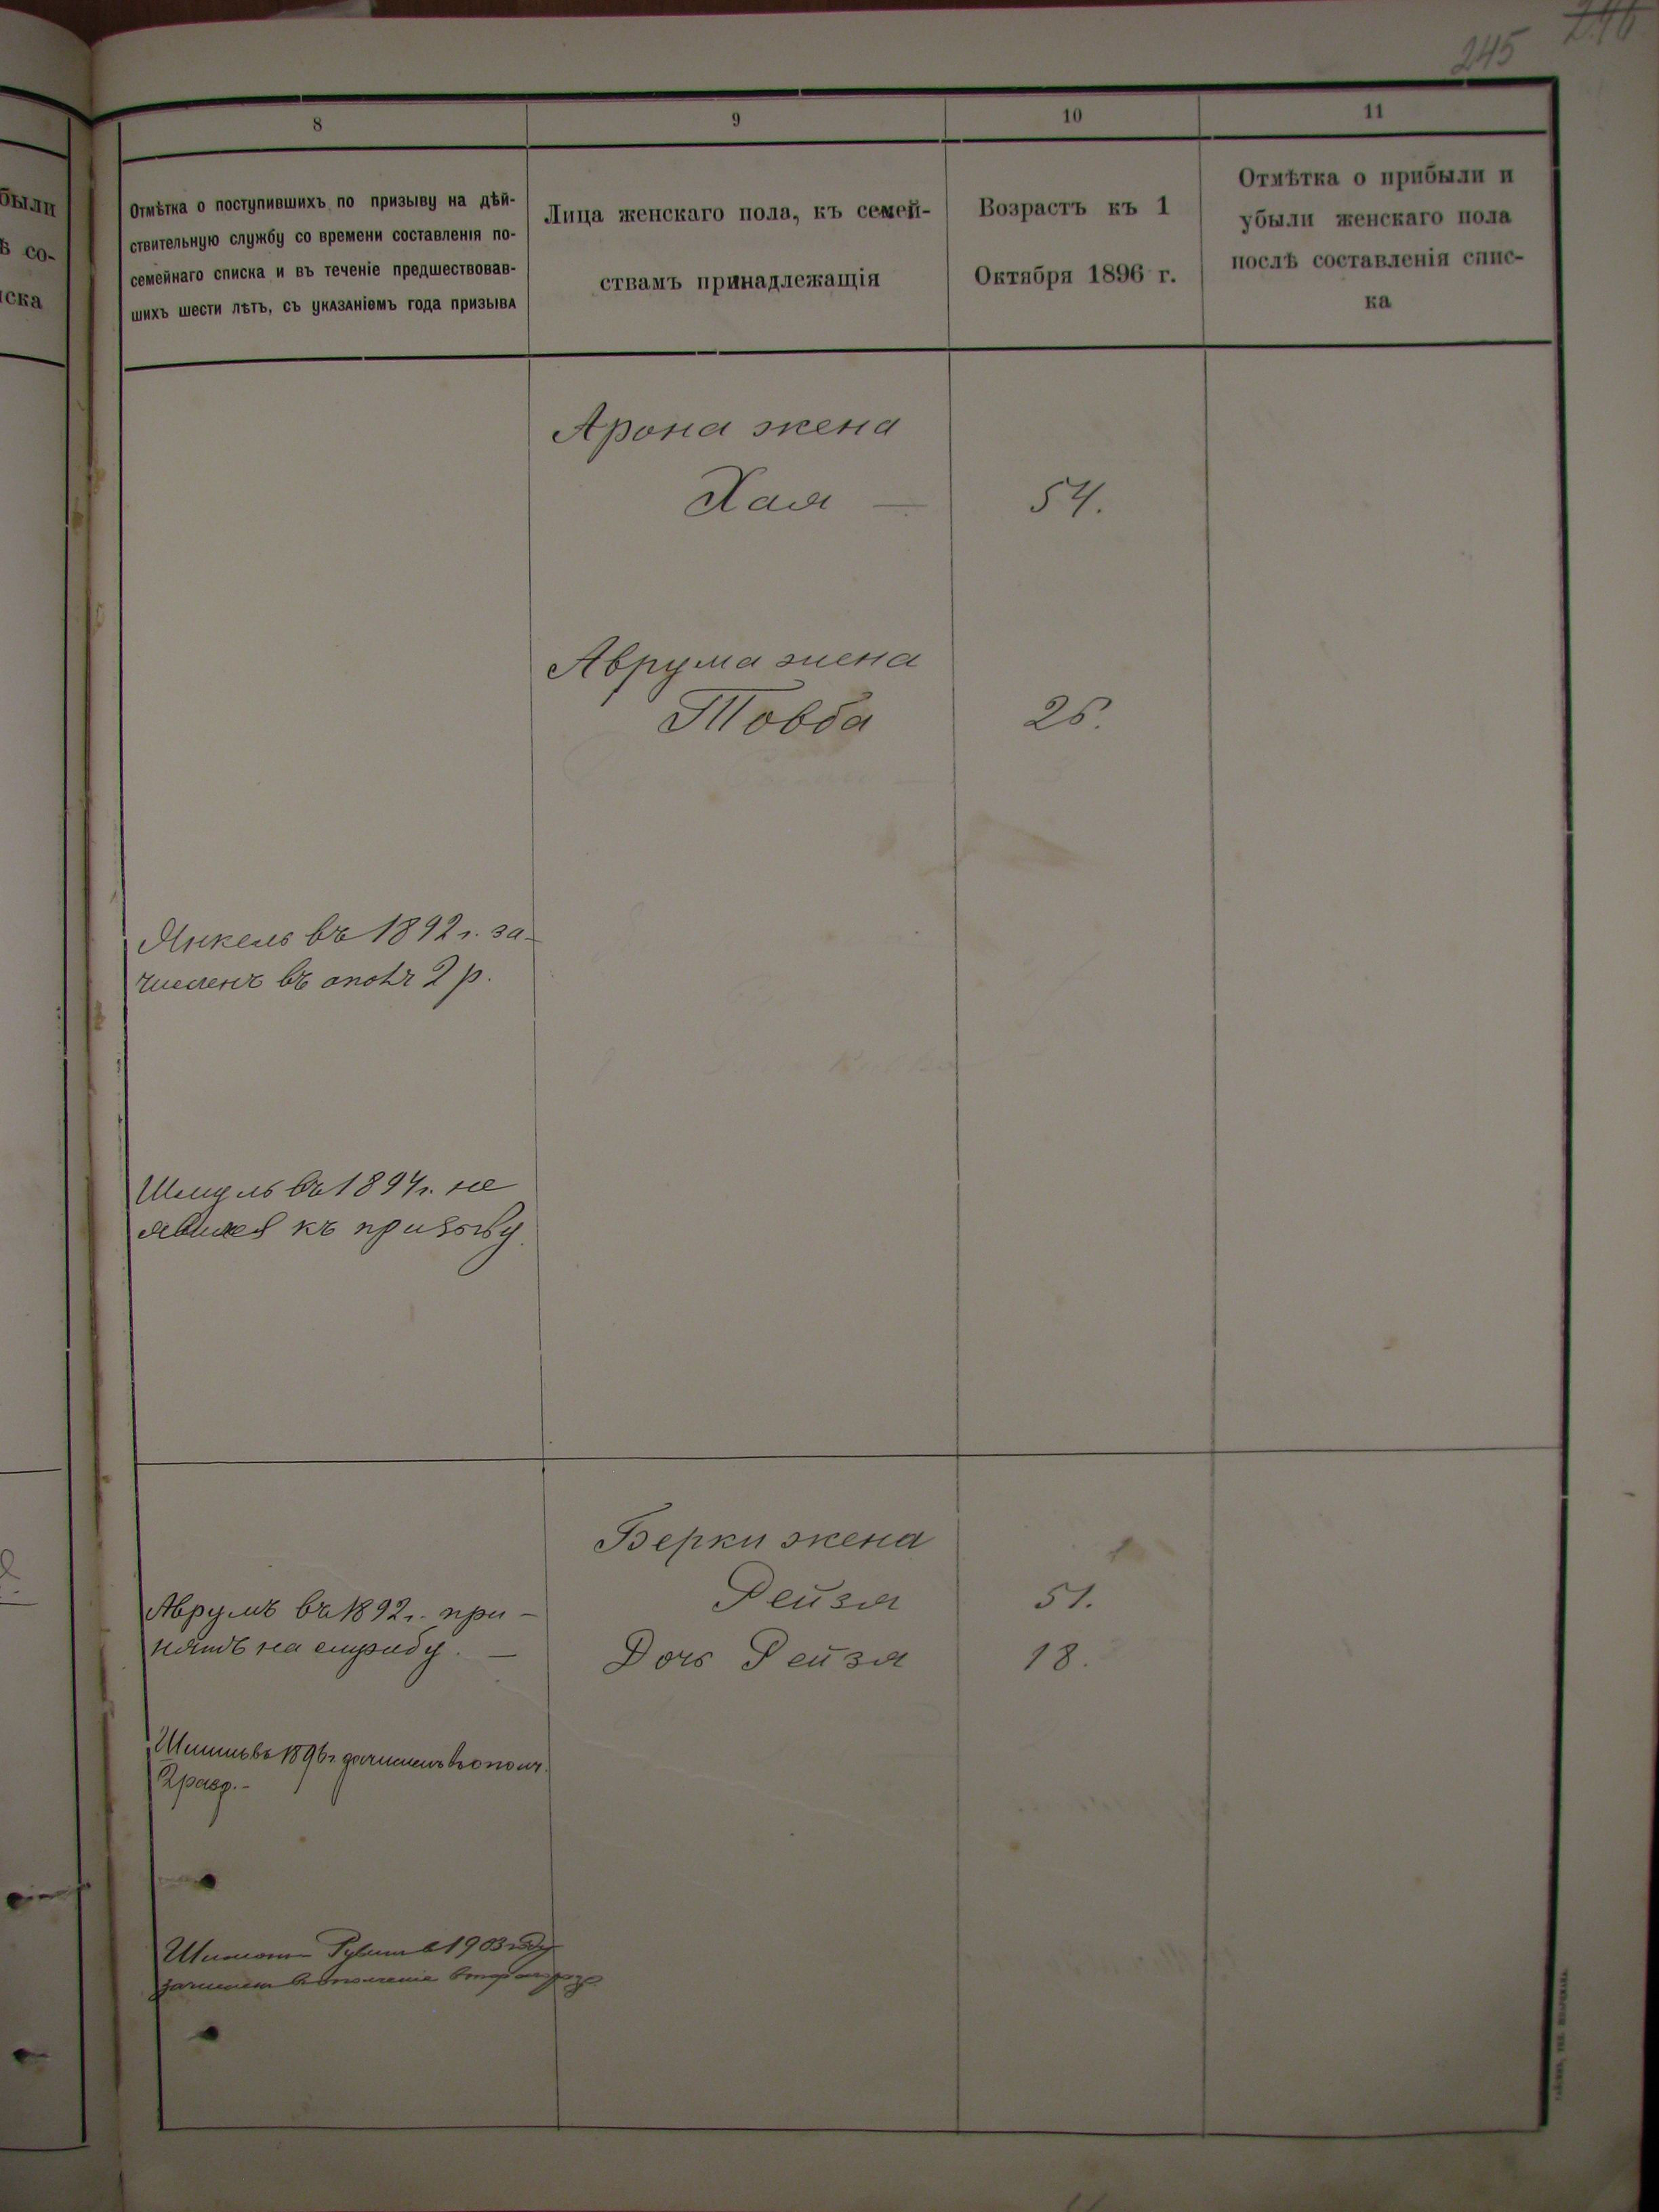 246
245
были
ѣ со-
иска
8
9
10
11
Отмѣтка о поступившихъ по призыву на дѣй-
ствительную службу со времени составленія по-
семейнаго списка и въ теченіе предшествовав-
шихъ шести лѣтъ, съ указаніемъ года призыва
Лица женскаго пола, къ семей-
ствамъ принадлежащія
Возрастъ къ 1
Октября 1896 г.
Отмѣтка о прибыли и
убыли женскаго пола
послѣ составленія спис-
ка
Арона жена
Хая — 54.
Аврума жена
Товба 26.
Янкель въ 1892 г. за-
численъ въ опол. 2 р.
Шмуль въ 1894 г. не
явился къ призыву.
Берки жена
Рейзя 51.
Аврумъ въ 1892 г. при-
нятъ на службу. —
Дочь Рейзя 18.
въ 1896 г. зачисленъ въ ополч.
2 разр.-
Рувинъ в 1903 году
зачислен в ополчение второго разр